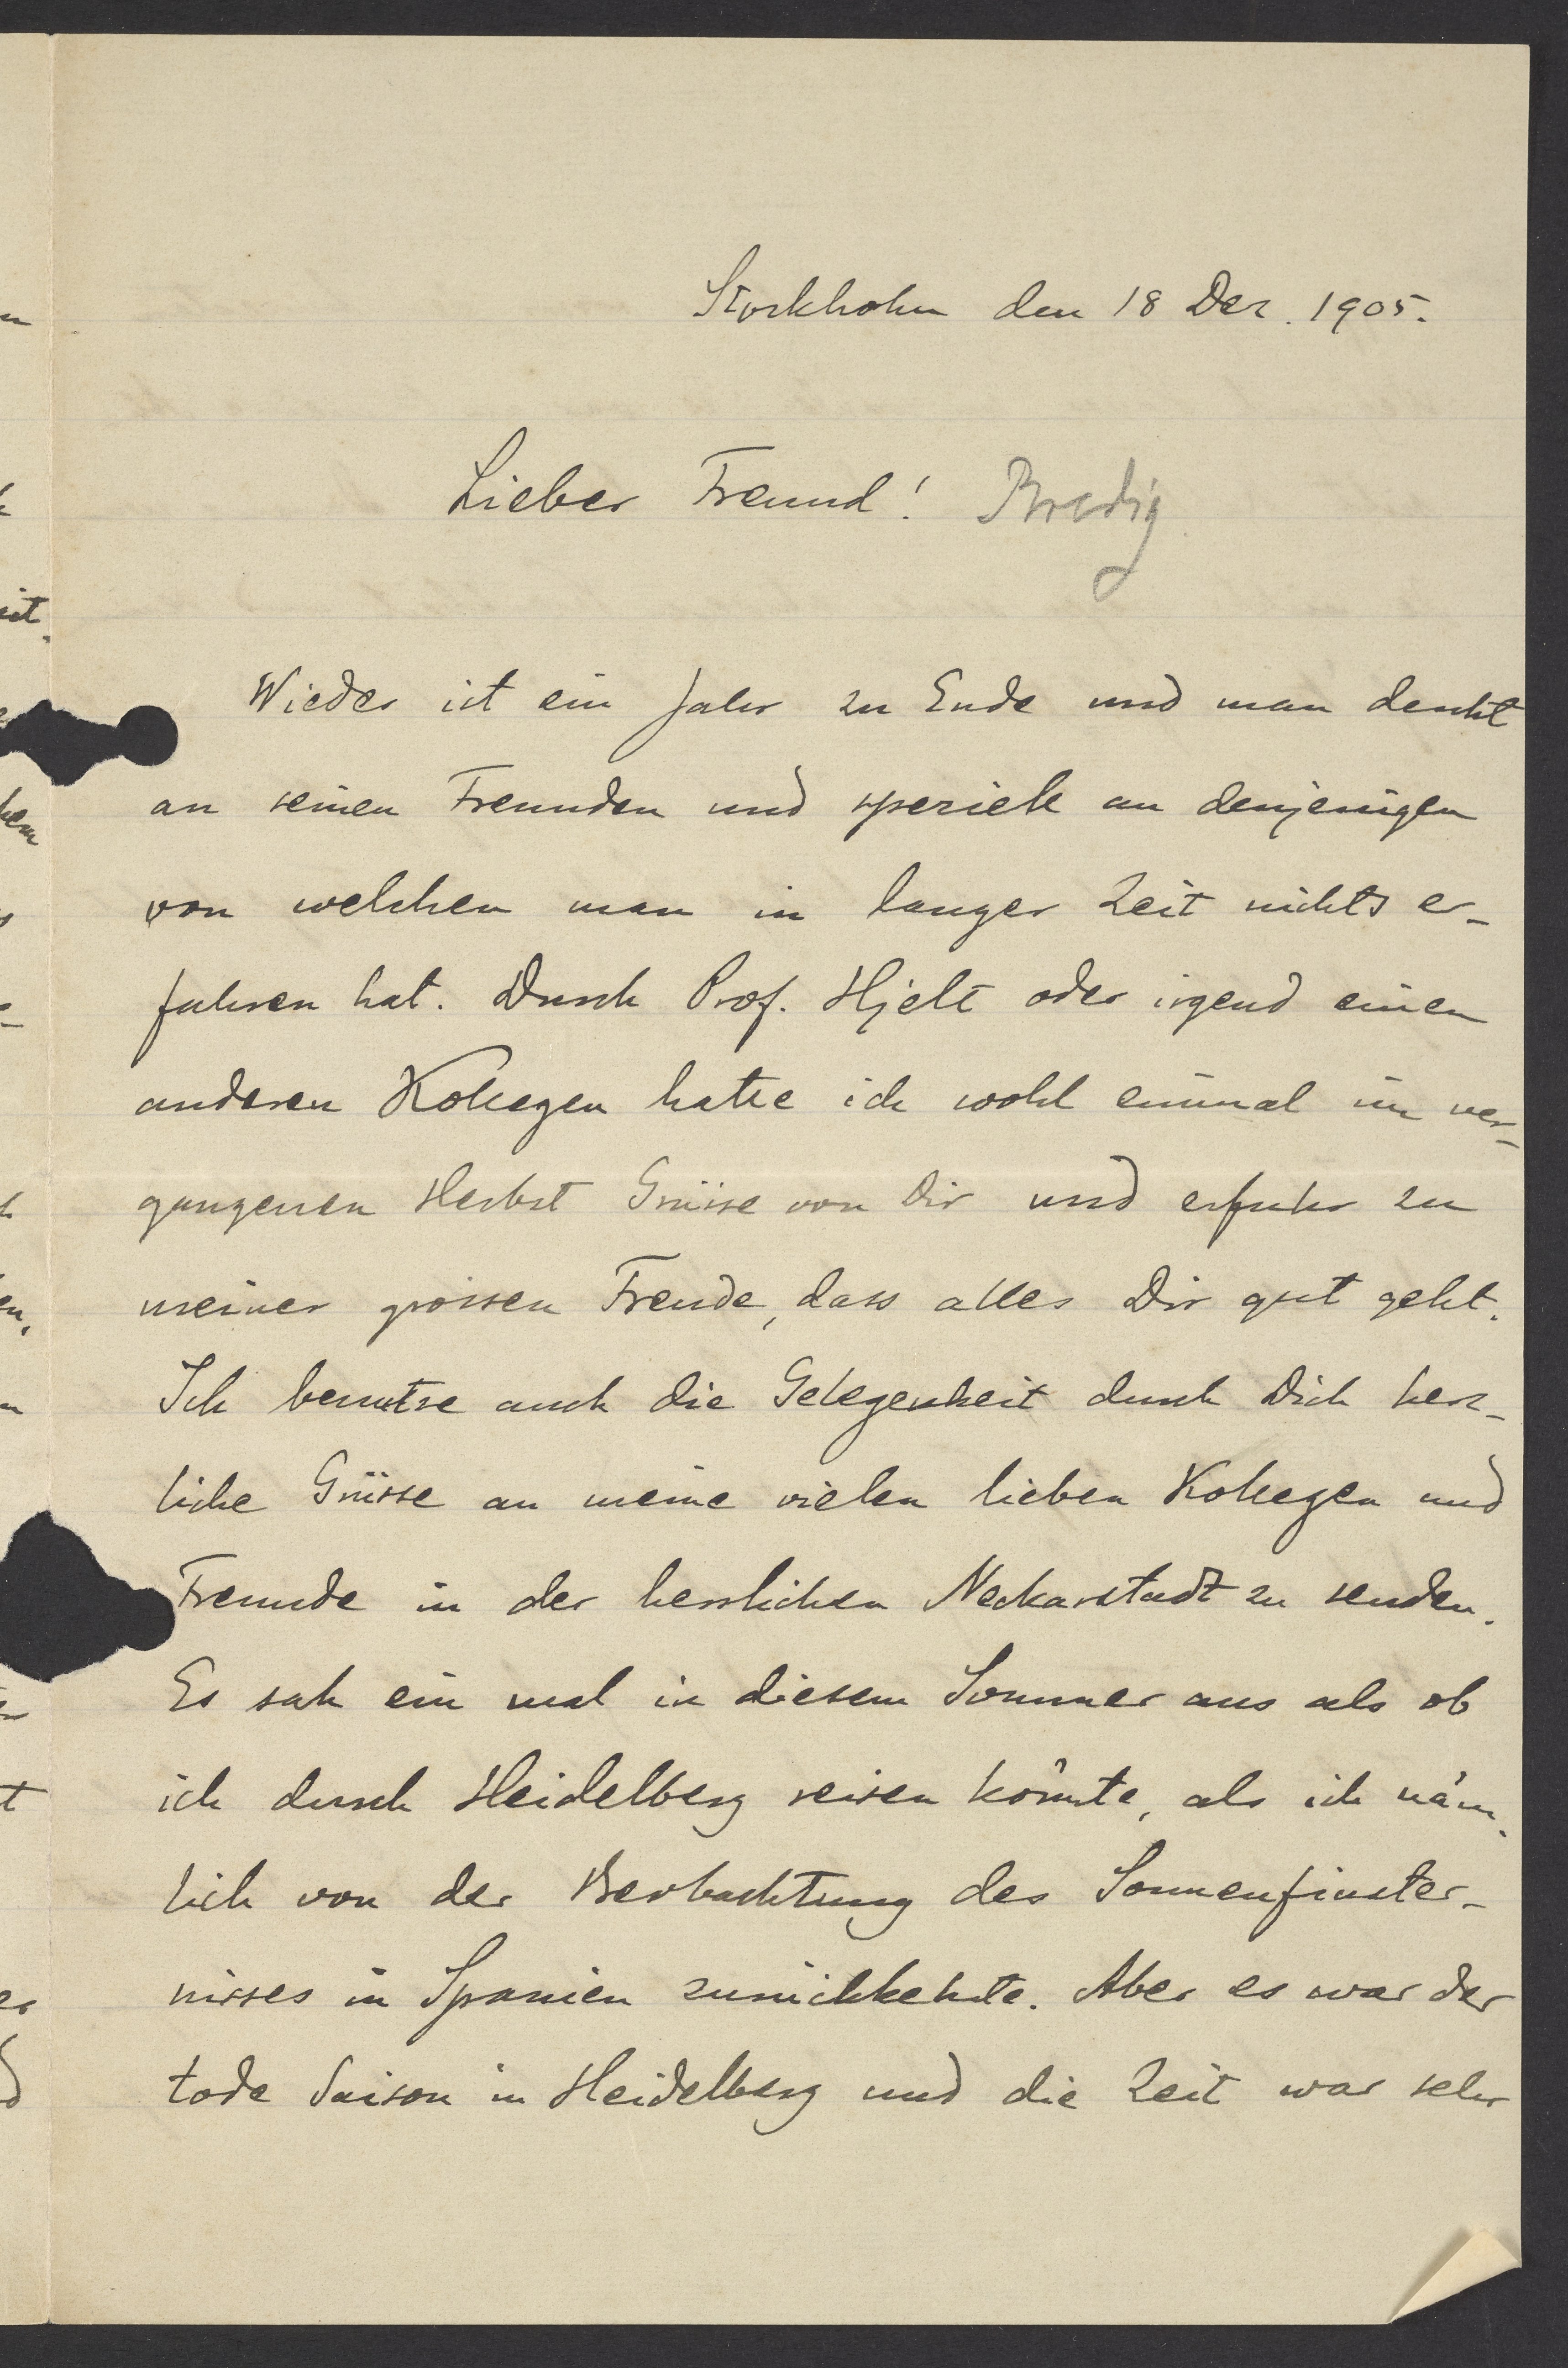 Stockholm den 18 Dez. 1905.
Lieber Freund! Bredig
Wieder ist ein Jahr zu Ende und man denkt
an seinen Freunden und speziell an denjenigen
von welchen man in langer Zeit nichts er-
fahren hat. Durch Prof. Hjelt oder irgend einen
anderen Kollegen hatte ich wohl einmal im ver-
gangenen Herbst Grüsse von Dir und erfuhr zu
meiner grossen Freude, dass alles Dir gut geht.
Ich benutze auch die Gelegenheit durch Dich herz-
liche Grüsse an meine vielen lieben Kollegen und
Freunde in der herrlichen Neckarstadt zu senden.
Es sah ein mal in diesem Sommer aus als ob
ich durch Heidelberg reisen könnte, als ich näm-
lich von der Beobachtung des Sonnenfinster-
nisses in Spanien zurückkehrte. Aber es war der
tode Saison in Heidelberg und die Zeit war sehr